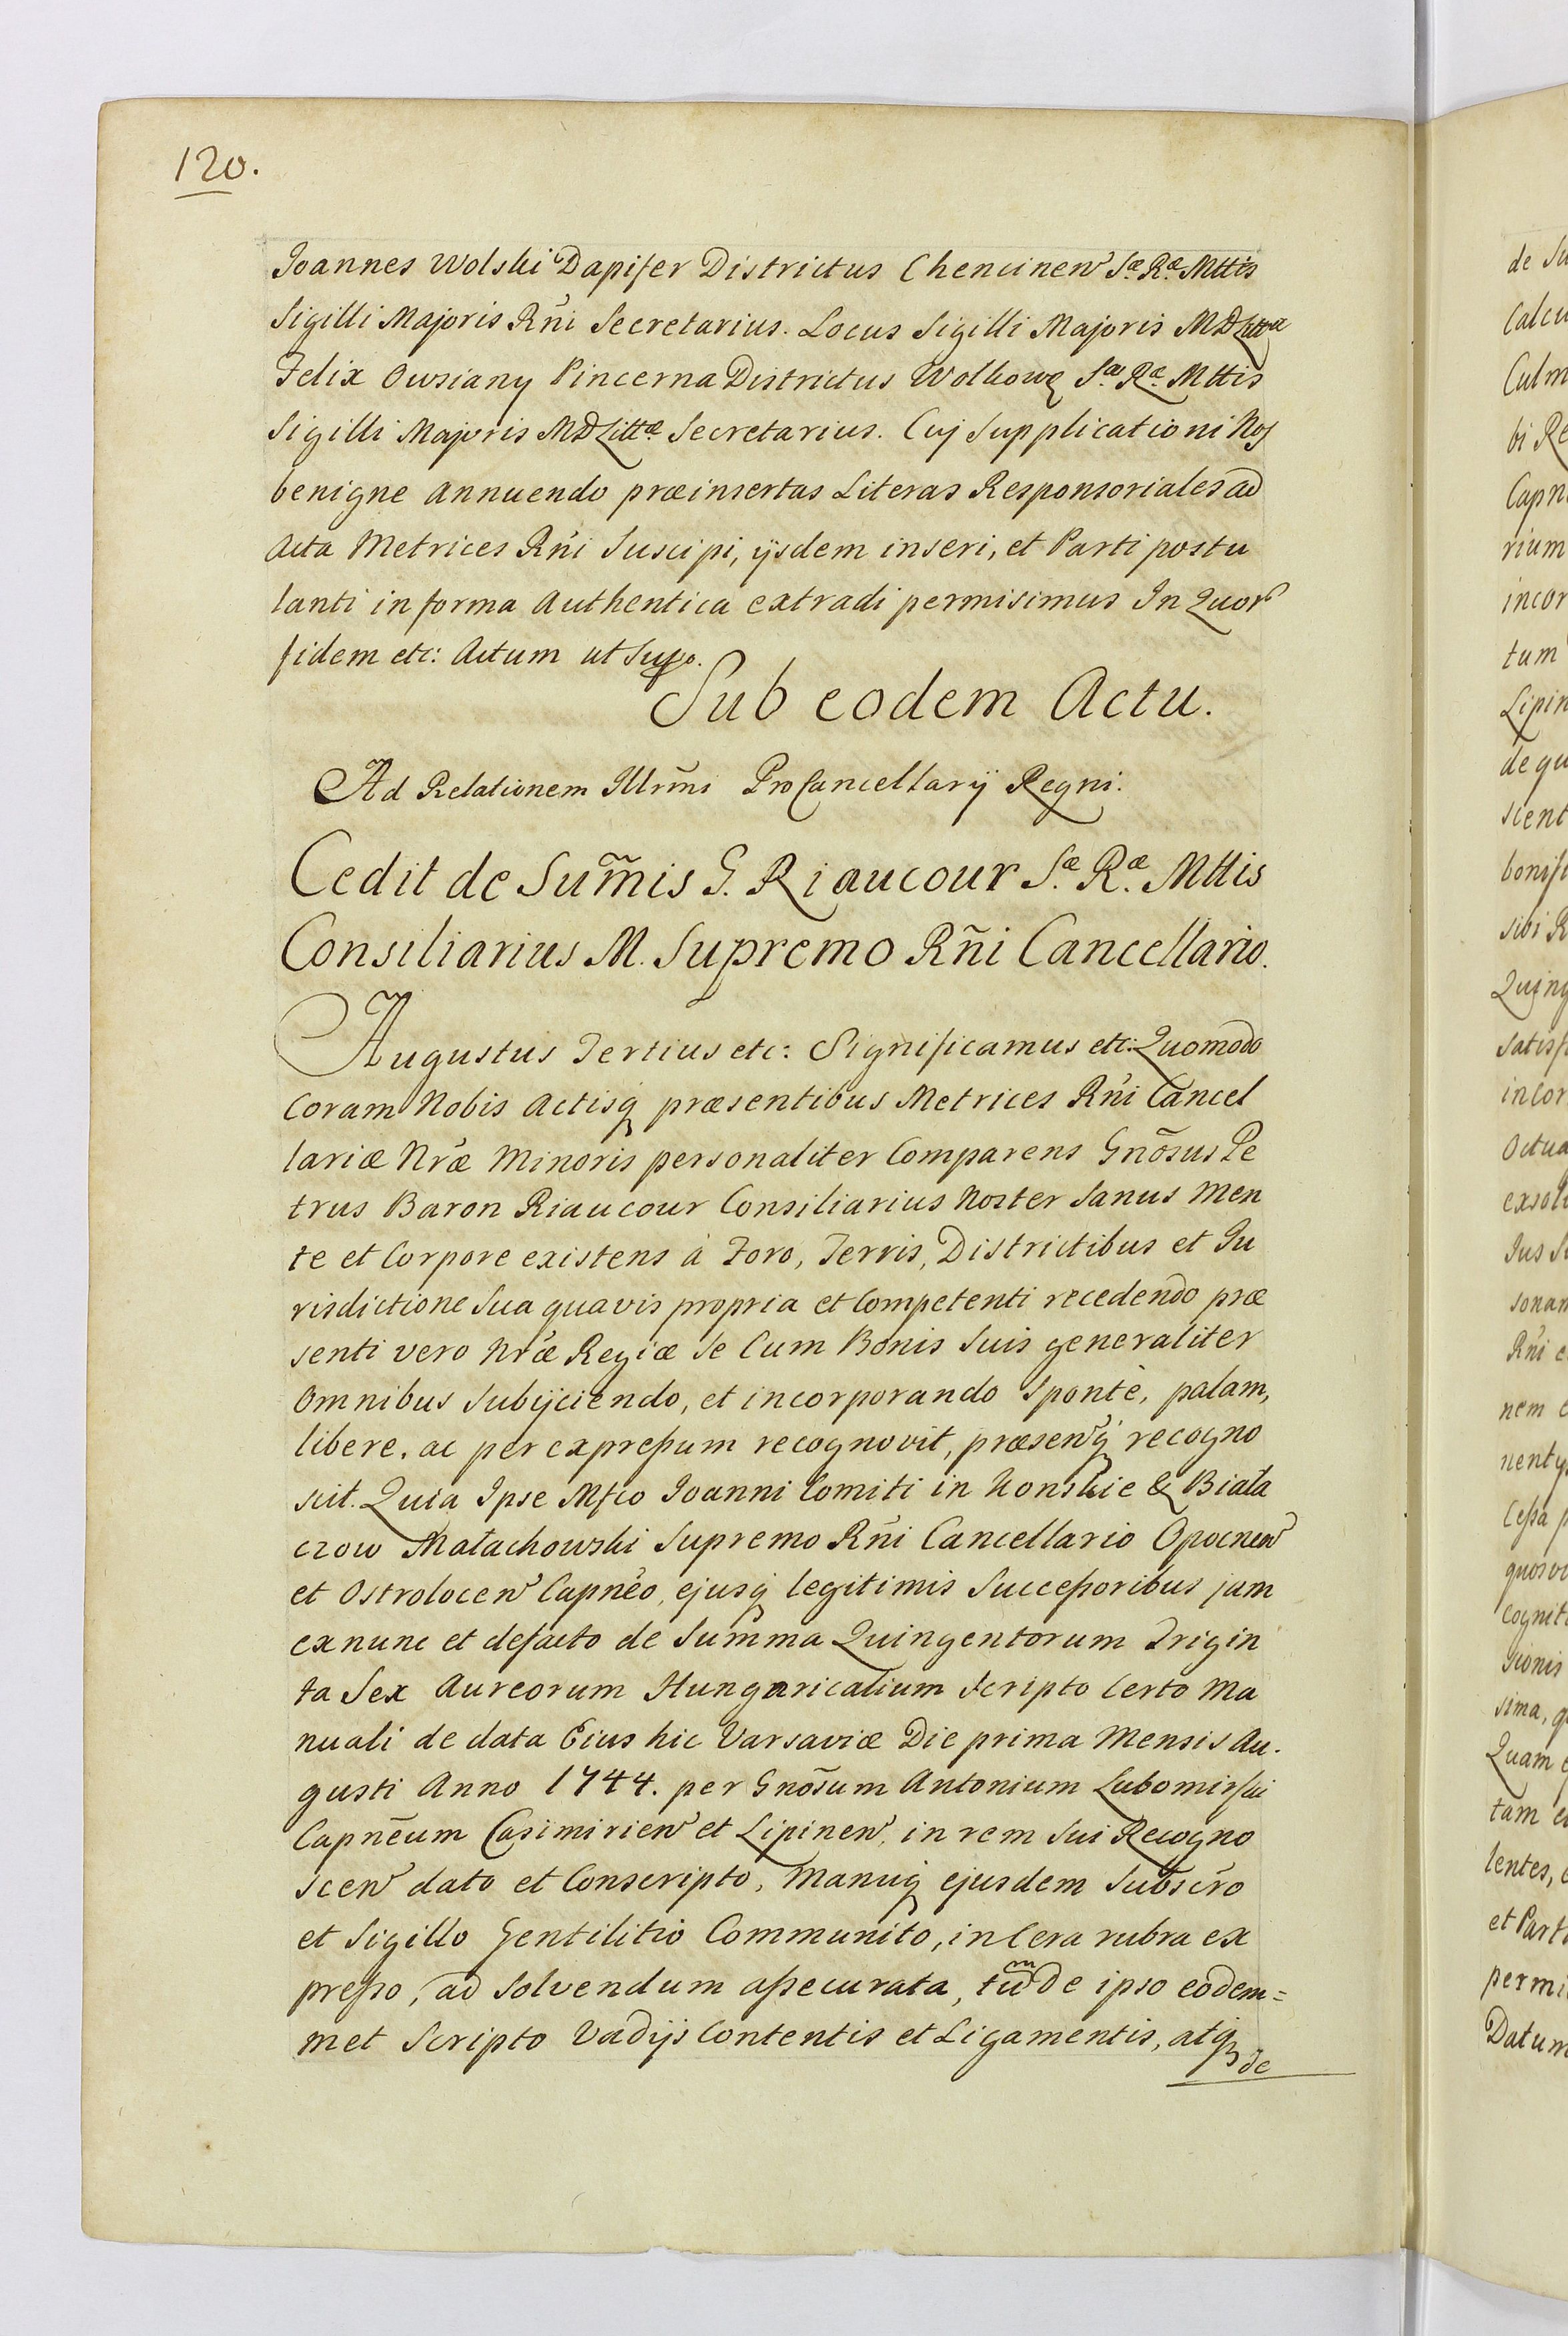 120.
Joannes Wolski Dapifer Districtus Chencinen Sæ Ræ Mttis
Sigilli Majoris Rñi Secretarius. Locus Sigilli Majoris MDLittæ
Felix Owsiany Pincerna Districtus Wolkow Sæ Ræ Mttis
Sigilli Majoris MDLittæ Secretarius. Cuj Supplicationi Nos
benigne annuendo præinsertas Literas Responsoriales ad
Acta Metrices Rñi Suscipi, ijsdem inseri, et Parti postu
lanti in forma Authentica extradi permisimus In Quor
fidem etc: Actum ut Supo.
Sub eodem Actu.
Ad Relationem Illrm̃i ProCancellarij Regni.
Cedit de Sum̃is G. Riaucour Sæ Ræ Mttis
Consiliarius M. Supremo Rñi Cancellario.
Augustus Tertius etc: Significamus etc: Quomodo
Coram Nobis Actisq præsentibus Metrices Rñi Cancel
lariæ Nræ Minoris personaliter Comparens Gnõsus Pe
trus Baron Riaucour Consiliarius Noster Sanus Men
te et Corpore existens à Foro, Terris, Districtibus et Ju
risdictione Sua quavis propria et Competenti recedendo præ
senti vero Nræ Regiæ Se Cum Bonis Suis generaliter
Omnibus Subijciendo, et incorporando Spontè, palam,
libere, ac per expreſsum recognovit, præsenq recogno
scit. Quia Ipse Mfco Joanni Comiti in Konskie & Biała
czow Małachowski Supremo Rñi Cancellario Opocnen
et Ostrolocen Capnẽo, ejusq legitimis Succeſsoribus jam
exnunc et defacto de Summa Quingentorum Trigin
ta Sex Aureorum Hungaricalium Scripto Certo Ma
nuali de data Eius hic Varsaviæ Die prima Mensis Au.
gusti Anno 1744. per Gnõsum Antonium Lubomirski
Capnẽum Casimirien et Lipinen, in rem Sui Recogno
scen dato et Conscripto, Manuq ejusdem Subscro
et Sigillo Gentilitio Communito, in Cera rubra ex
preſso, ad Solvendum aſsecurata, tum de ipso eodem=
met Scripto Vadijs Contentis et Ligamentis, atq de
de Su
Calcu
Culm
bi Re
Capn
rium
incor
tum
Lipin
de qu
scent
bonif
sibi R
Quing
Satisf
in Cor
Octua
exsol
Jus S
sonan
Rñi e
nem e
nenty
Ceſsa p
quosvi
Cognit
sionis
sima, q
Quam e
tam e
lentes, e
et Part
permi
Datum